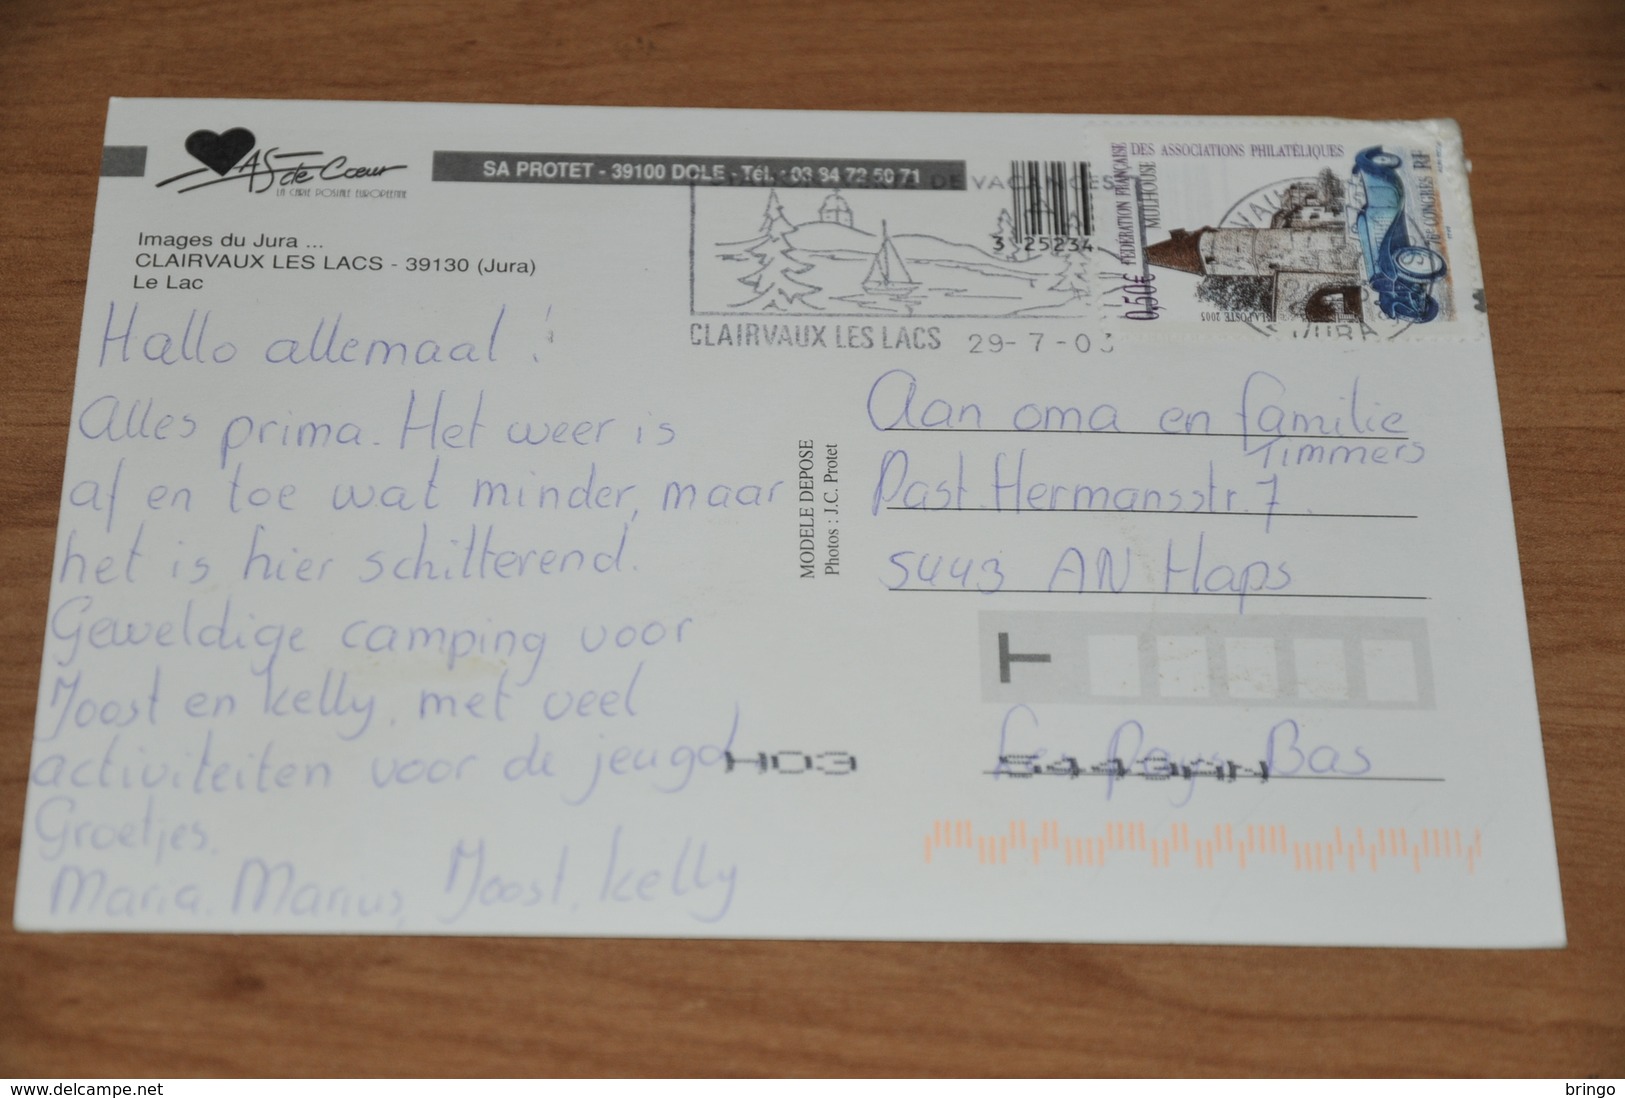 As de Cœur
LA CARTE POSTALE EUROPÉENNE
SA PROTET - 39100 DOLE - Tél. : 03 84 72 50 71
Images du Jura ...
CLAIRVAUX LES LACS - 39130 (Jura)
Le Lac
DE VACANCES
3 25234
CLAIRVAUX LES LACS 29-7-0
FÉDÉRATION FRANÇAISE DES ASSOCIATIONS PHILATÉLIQUES
MULHOUSE
76e CONGRÈS RF
0,50€
LA POSTE 2003
JURA
Hallo allemaal !
Alles prima. Het weer is
af en toe wat minder, maar
het is hier schitterend.
Geweldige camping voor
Joost en Kelly, met veel
activiteiten voor de jeugd
Groetjes.
Maria. Marius, Joost, Kelly
MODELE DEPOSE
Photos : J.C. Protet
Aan oma en familie
Timmers
Past. Hermansstr. 7.
5443 AN Haps
T
Les Pays Bas
H03
5443AN
delcampe.net
bringo